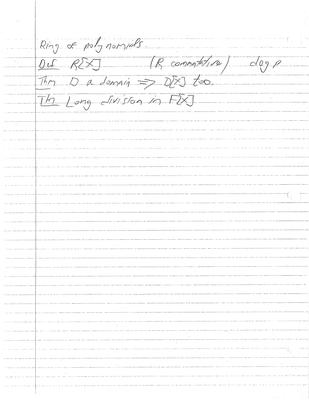 Ring of polynomials.
Def R[X] (R commutative) deg p
Thm D a domain ⇒ D[X] too.
Th Long division in F[X]